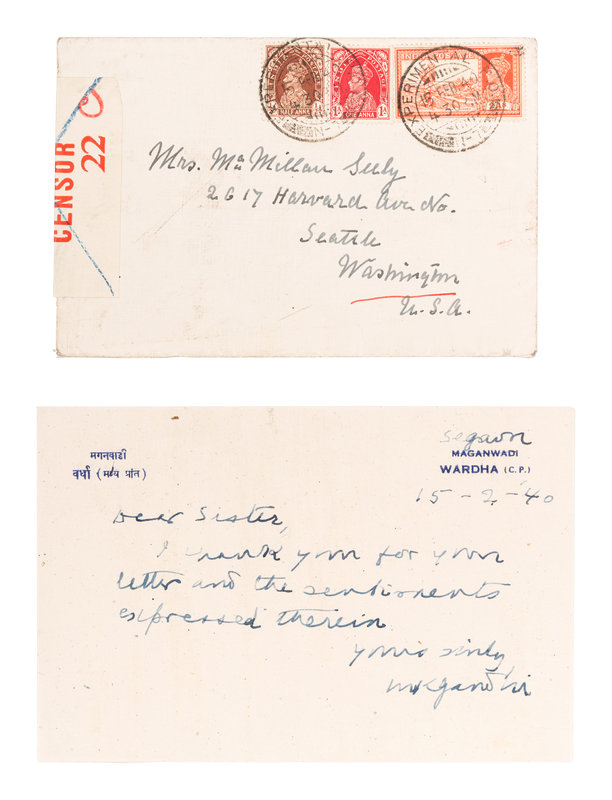 CENSOR
22
HALF ANNA
ONE ANNA
EXPERIMENTAL
15 FEB.40
4-30
Mrs. Mc Millan Seely
2617 Harvard Ave. No.
Seattle
Washington
U.S.A.
मगनवाडी
वर्धा (मध्य प्रांत)
Segaon
MAGANWADI
WARDHA (C. P.)
15-2-'40
Dear Sister,
I thank you for your
letter and the sentiments
expressed therein.
Yours sincly
MKGandhi